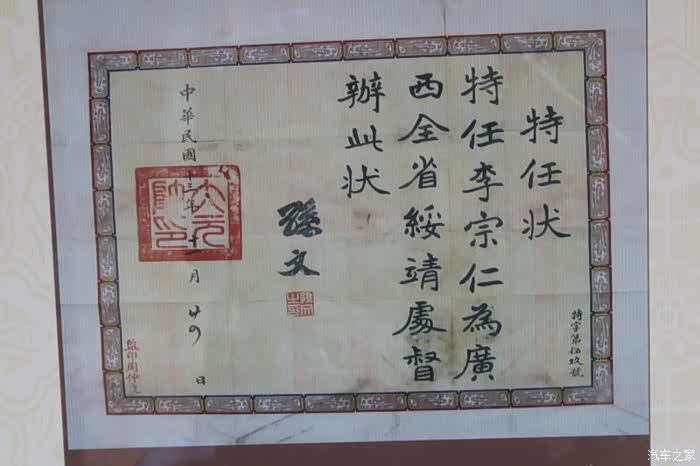 特任状
特字第伍玖號
特任李宗仁為廣
西全省綏靖處督
辦此状
孫文
中華民國十三年十一月廿四日
大元帥印
監印周仲
汽车之家